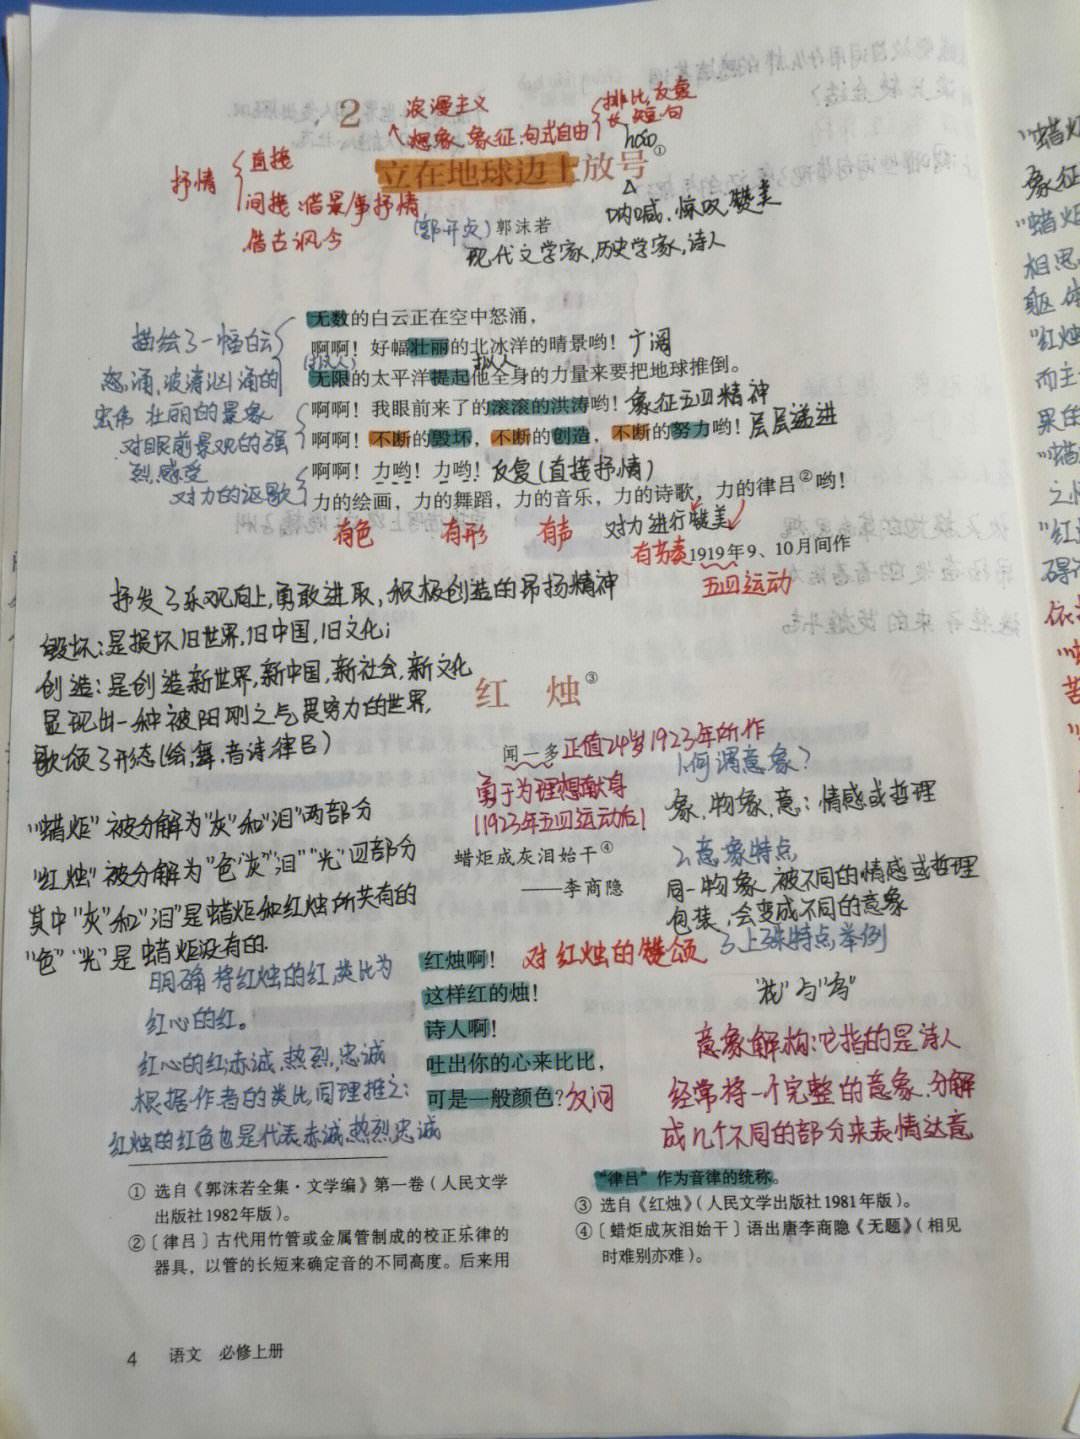 2
浪漫主义
想象、象征、句式自由
排比、反复
长短句
hào
立在地球边上放号①
抒情
直接
间接:借景/事抒情
借古讽今
呐喊、惊叹、赞美
(郭开贞)郭沫若
现代文学家,历史学家,诗人
无数的白云正在空中怒涌,
啊啊!好幅壮丽的北冰洋的晴景哟!广阔
(拟人)
拟人
无限的太平洋提起他全身的力量来要把地球推倒。
啊啊!我眼前来了的滚滚的洪涛哟!象征五四精神
啊啊!不断的毁坏,不断的创造,不断的努力哟!层层递进
啊啊!力哟!力哟!反复(直接抒情)
力的绘画,力的舞蹈,力的音乐,力的诗歌,力的律吕②哟!
描绘了一幅白云
怒涌,波涛汹涌的
宏伟壮丽的景象
对眼前景观的强
烈感受
对力的讴歌
有色
有形
有声
对力进行赞美
有节奏
1919年9、10月间作
五四运动
抒发了乐观向上,勇敢进取,积极创造的昂扬精神
毁坏:是损坏旧世界,旧中国,旧文化;
创造:是创造新世界,新中国,新社会,新文化
显现出一种被阳刚之气贯穿力的世界,
歌颂了形态(绘,舞,音诗律吕)
红 烛③
闻一多 正值24岁1923年所作
勇于为理想献身
(1923年五四运动后)
蜡炬成灰泪始干④
——李商隐
1.何谓意象?
象,物象,意:情感或哲理
2.意象特点
同一物象,被不同的情感或哲理
包装,会变成不同的意象
3.上殊特点举例
"我"与"鸟"
意象解构:它指的是诗人
经常将一个完整的意象,分解
成几个不同的部分来表情达意
"蜡炬"被分解为"灰"和"泪"两部分
"红烛"被分解为"色""灰""泪""光"四部分
其中"灰"和"泪"是蜡炬和红烛所共有的
"色""光"是蜡炬没有的.
明确将红烛的红,类比为
红心的红。
红心的红:赤诚,热烈,忠诚
根据作者的类比同理推之:
红烛的红色也是代表赤诚,热烈忠诚
红烛啊!对红烛的赞颂
这样红的烛!
诗人啊!
吐出你的心来比比,
可是一般颜色?反问
① 选自《郭沫若全集·文学编》第一卷(人民文学
出版社1982年版)。
②〔律吕〕古代用竹管或金属管制成的校正乐律的
器具,以管的长短来确定音的不同高度。后来用
"律吕"作为音律的统称。
③ 选自《红烛》(人民文学出版社1981年版)。
④〔蜡炬成灰泪始干〕语出唐李商隐《无题》(相见
时难别亦难)。
4 语文 必修上册
"蜡炬
象征
"蜡炬
相思
躯体
"红烛
而主
果的
"蜡
之情
"红
碍
依
苦